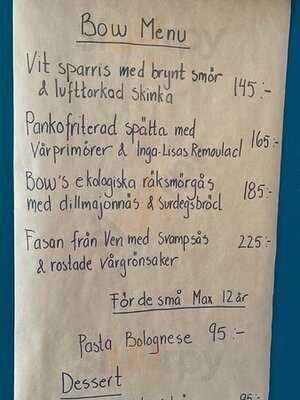 Bow Menu
Vit sparris med brynt smör
& lufttorkad skinka 145:-
Pankofriterad spätta med
Vårprimörer & Inga-Lisas Remoulad 165:-
Bow's ekologiska räksmörgås
med dillmajonnäs & Surdegsbröd 185:-
Fasan från Ven med Svampsås
& rostade vårgrönsaker 225:-
För de små Max 12 år
Pasta Bolognese 95:-
Dessert
95:-